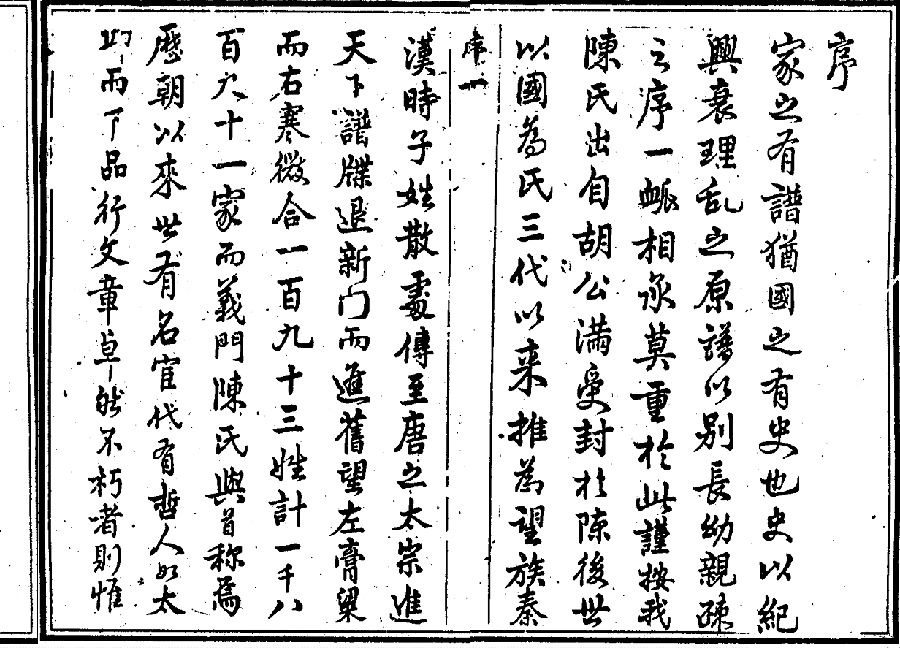 序
家之有譜猶國之有史也史以紀
興衰理乱之原譜以别長幼親疎
之序一䘑相承莫重於此謹按我
陳氏出自胡公滿受封於陳後世
以國為氏三代以来推為望族秦
序一
漢時子姓散處傳至唐之太宗進
天下譜牒退新门而進舊望左膏粱
而右寒微合一百九十三姓計一千八
百九十一家而義門陳氏與首称焉
歷朝以來世有名宦代有哲人如太
而下品行文章卓然不朽者則惟